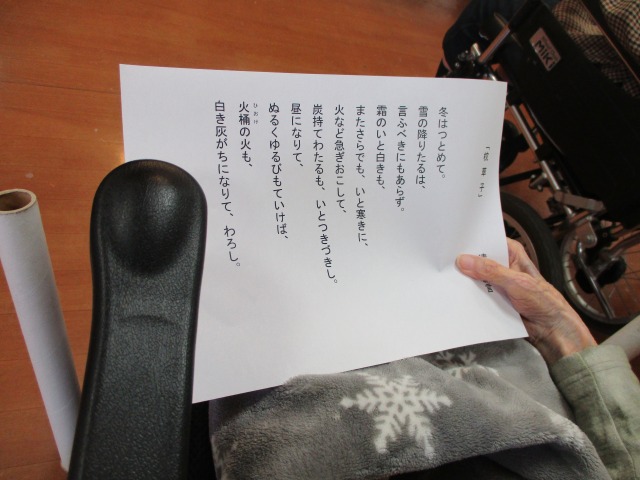 「枕草子」
冬はつとめて。
雪の降りたるは、
言ふべきにもあらず。
霜のいと白きも、
またさらでも、いと寒きに、
火など急ぎおこして、
炭持てわたるも、いとつきづきし。
昼になりて、
ぬるくゆるびもていけば、
火桶の火も、
ひおけ
白き灰がちになりて、わろし。
MiKi